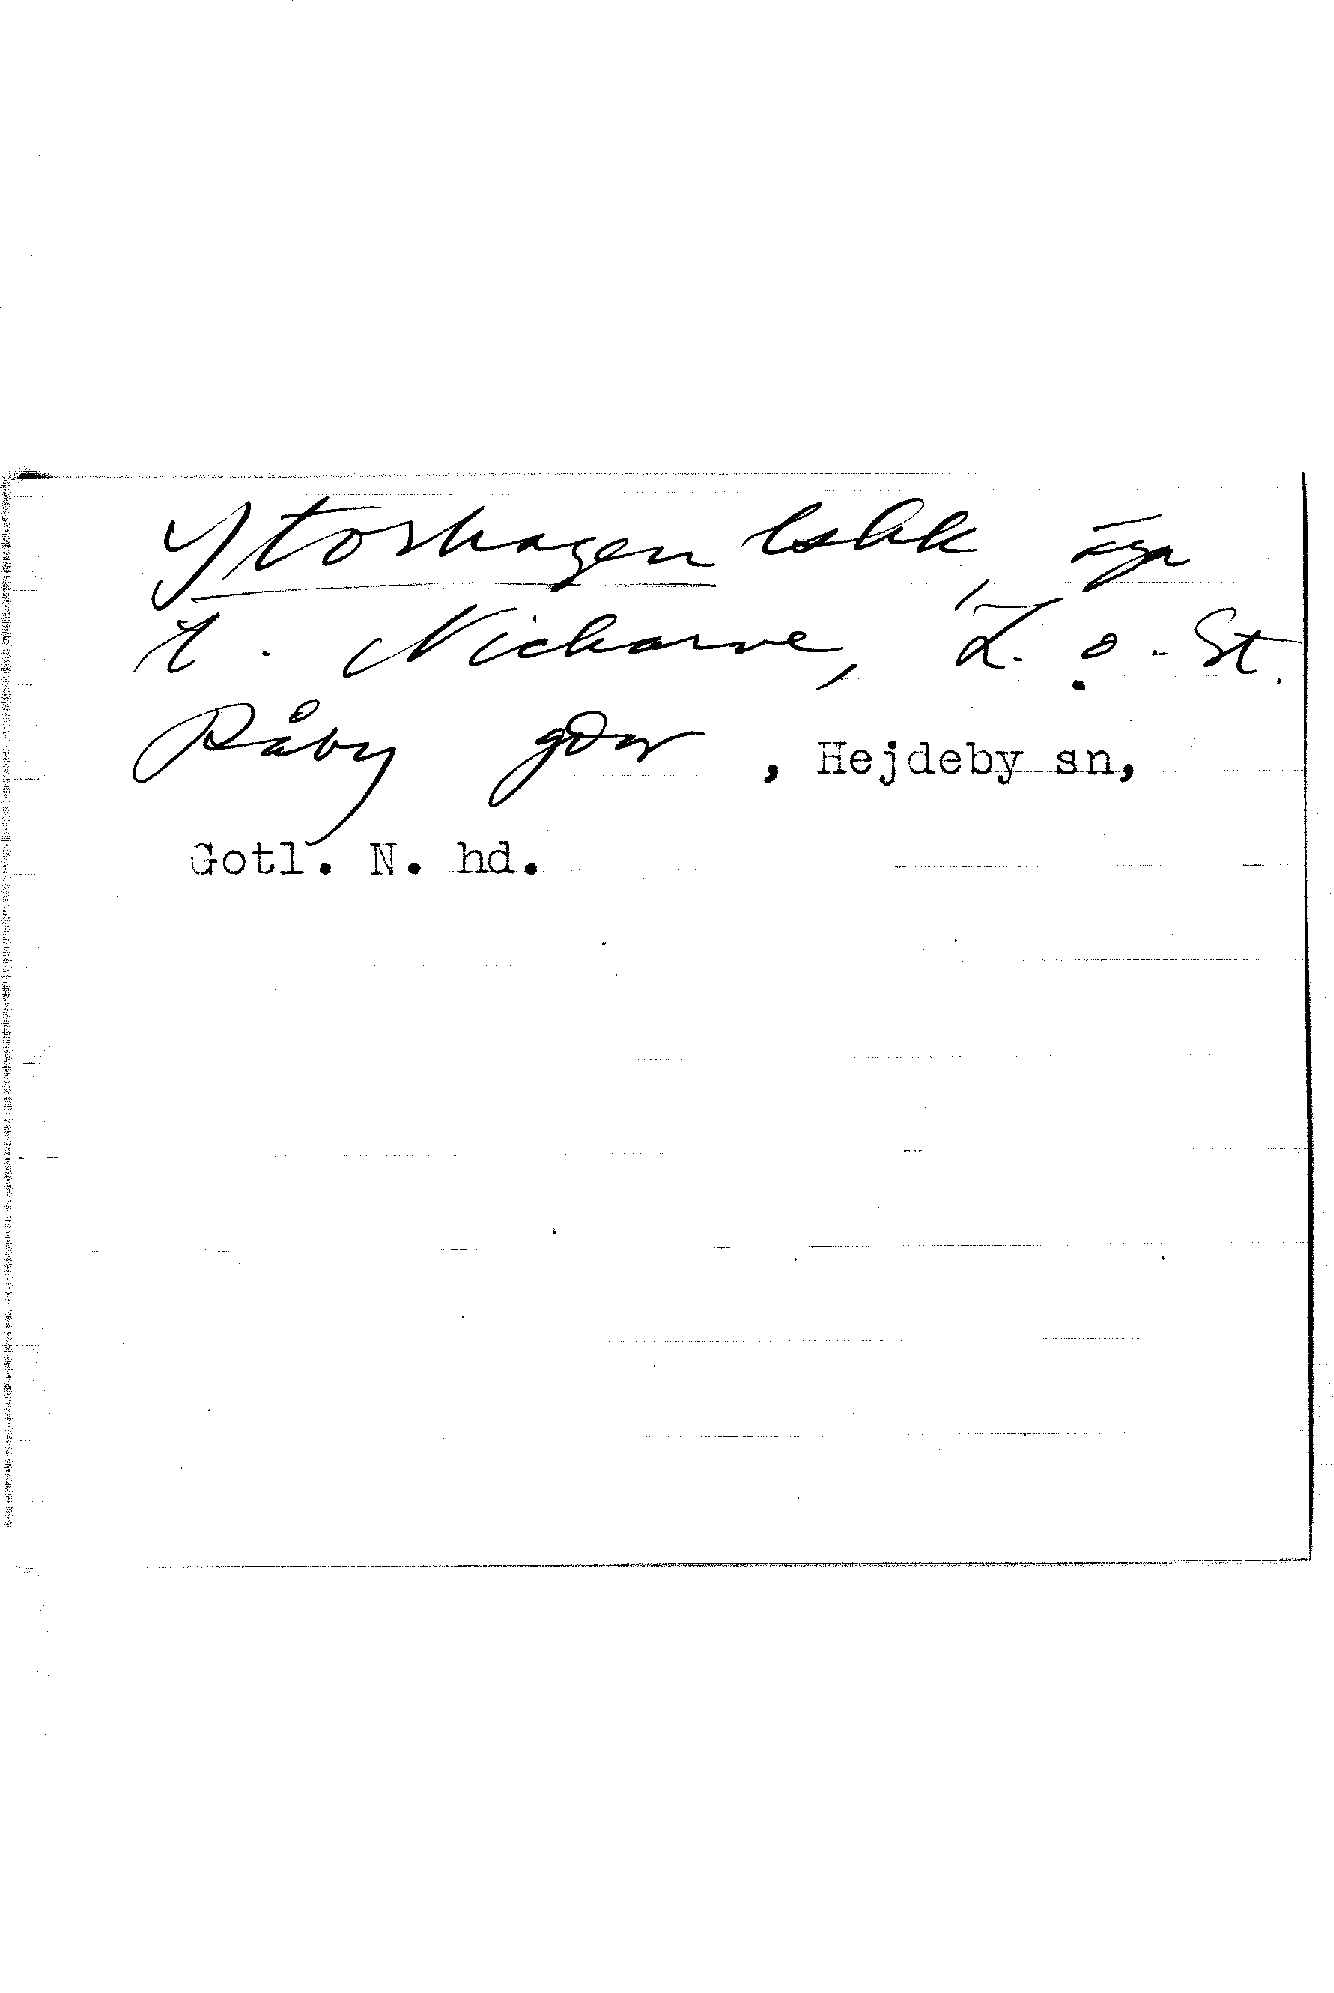 Ytorhagen äga
t. Nickarve, L. o. St.
Råby gdar, Hejdeby sn,
Gotl. N. hd.